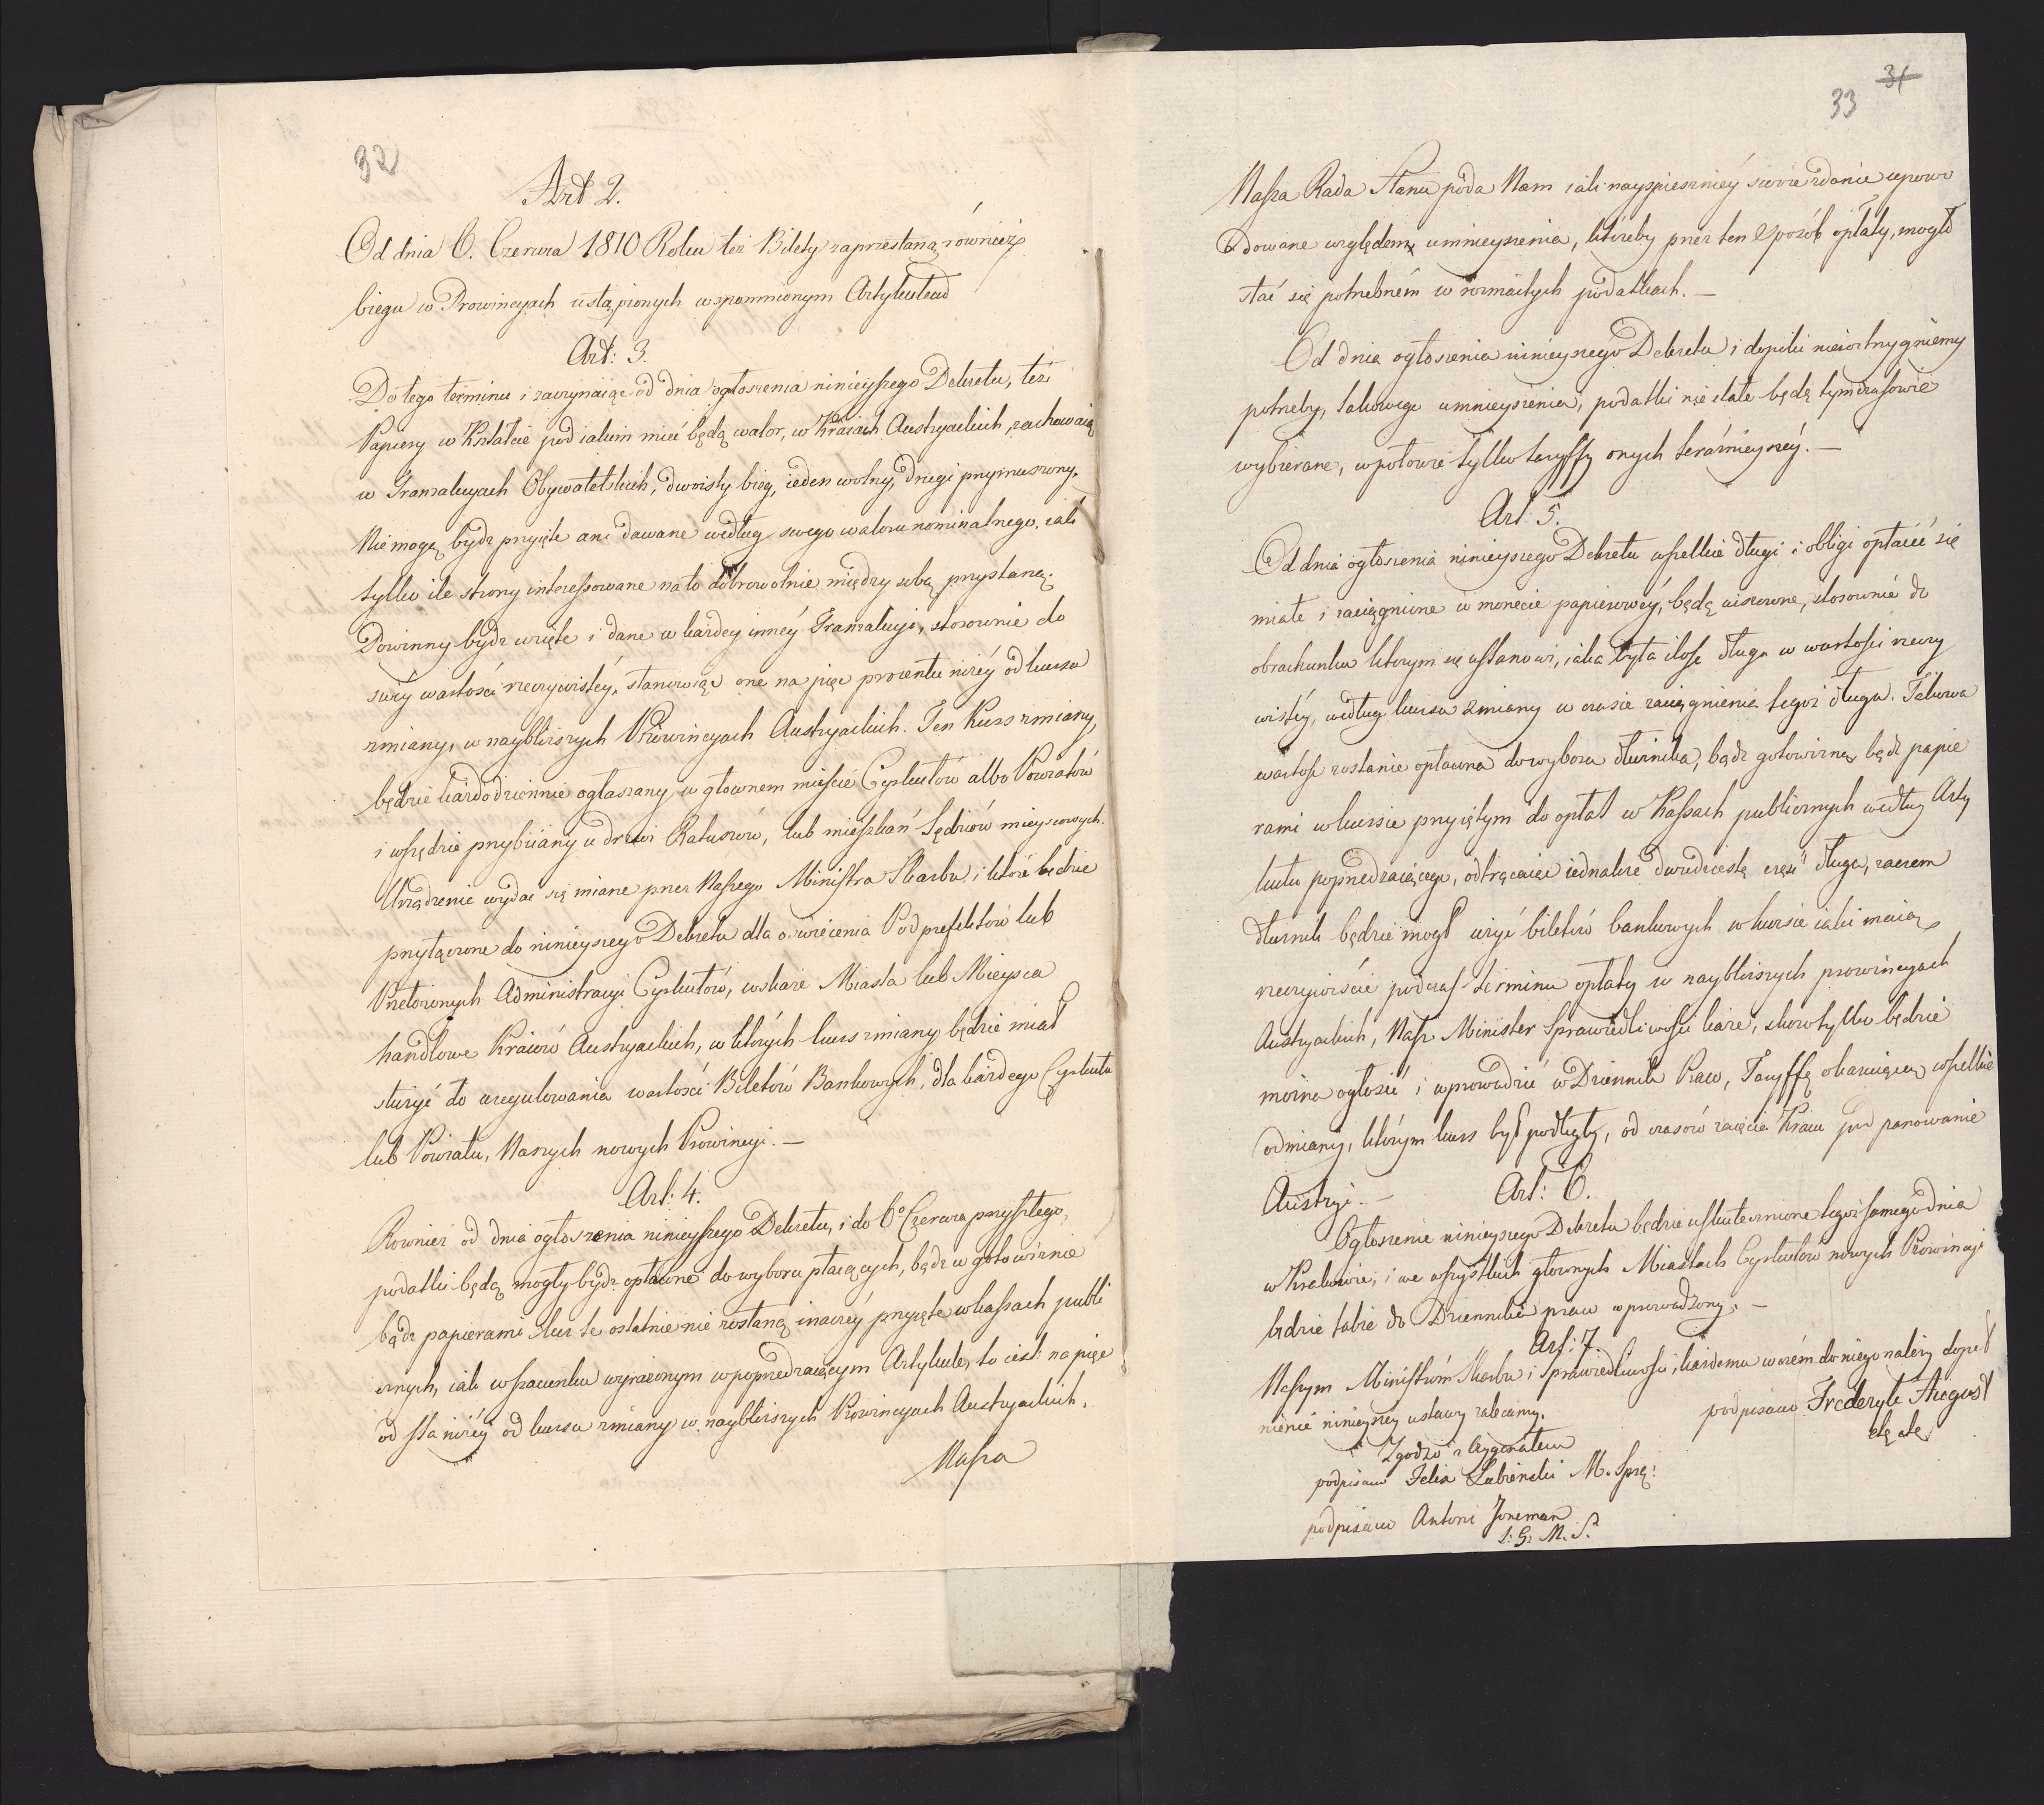 32
Art 2.
Od dnia 6. Czerwca 1810 Roku też Bilety zaprzestaną również
biegu w Prowincyach ustąpionych wspomnionym Artykułem
Art: 3.
Do tego terminu i zaczynaiąc od dnia ogłoszenia ninieyszego Dekretu, też
Papiery w Kształcie pod iakim mieć będą walor, w Kraiach Austryackich, zachowaią
w Tranzakcyach Obywatelskich, dwoisty bieg, ieden wolny, drugi przymuszony.
Nie mogą bydź przyięte ani dawane według swego waloru nominalnego, iak
tylko ile strony interessowane na to dobrowolnie między sobą przystaną.
Powinny bydź wzięte i dane w każdey innéy Tranzakcyi, stosownie do
swéy wartości rzeczywistéy, stanowiąc one na pięć procentu niżéy od kursu
zmiany, w nayblizszych Prowincyach Austryackich. Ten Kurs zmiany,
będzie każdodziennie ogłaszany w głownem mieście Cyrkułów albo Powiatów
i wszędzie przybiiany u drzwi Ratuszów, lub mieszkań Sędziów mieyscowych.
Urządzenie wydać się miane przez Naszego Ministra Skarbu, i które będzie
przyłączone do ninieyszego Dekretu dla oświécenia Podprefektów lub
Przełożonych Administracyi Cyrkułów, wskaże Miasta lub Mieysca
handlowe Kraiów Austryackich, w których kurs zmiany będzie miał
służyć do uregulowania wartości Biletów Bankowych, dla każdego Cyrkułu
lub Powiatu, Naszych nowych Prowincyi. —
Art: 4.
Rownież od dnia ogłoszenia ninieyszego Dekretu, i do 6º Czerwca przyszłego,
podatki będą mogły bydź opłacone do wyboru płacących, bądź w gotowiznie
bądź papierami lecz te ostatnie nie zostaną inaczéy przyięte w kassach publi
cznych, iak w szacunku wyrażonym w poprzedzaiącym Artykule, to iest: na pięć
od sta niżéy od kursu zmiany w nayblizszych Prowincyach Austryackich.
Nasza
33 31
Nasza Rada Stanu poda Nam iak nayspieszniéy zdanie upowo
dowane względem umnieyszenia, któreby przez ten sposób opłaty, mogło
stać się potrzebném w rozmaitych podatkach. —
Od dnia ogłoszenia ninieyszego Dekretu i dopóki nierozstrzygniemy
potrzeby, takowego umnieyszenia, podatki nie stałe będą tymczasowie
wybierane, w połowie tylko taryffy onych teraźnieyszéy. —
Art: 5.
Od dnia ogłoszenia ninieyszego Dekretu wszelkie długi i obligi opłacić się
miałe i zaciągnione w monecie papierowéy, będą uiszczone, stosownie do
obrachunku którym się ustanowi, iaka była ilość długu w wartości rzeczy
wistéy, według kursu zmiany w czasie zaciągnienia tegoż długu. Takowa
wartość zostanie opłacona do wyboru dłużnika, bądź gotowizną, bądź papie
rami w kursie przyiętym do opłat w Kassach publicznych według Arty
kułu poprzedzaiącego, odtrącaiąc iednakże dwudziestą część długu, zaczem
dłużnik będzie mogł użyć biletów bankowych w kursie iaki maią
rzeczywiście podczas terminu opłaty w nayblizszych prowincyach
Austryackich, Nasz Minister Sprawiedliwości każe, skoro tylko będzie
można ogłosić i wprowadzić w Dziennik Praw, Taryffę okazuiącą wszelkie
odmiany, którym kurs był podległy, od czasów zaięcia Kraiu pod panowanie
Austryi. —
Art: 6.
Ogłoszenie ninieyszego Dekretu będzie uskutecznione tegoż samego dnia
w Krakowie, i we wszystkich głownych Miastach Cyrkułów nowych Prowincyi
będzie także do Dziennika praw wprowadzony. —
Art: 7.
Naszym Ministróm Skarbu i Sprawiedliwości, każdemu w czém do niego należy dopeł
nienie ninieyszey ustawy zalecamy.
podpisano Frederyk August
Zgodno z Oryginałem
podpisano Felix Łubienski M. Spr:
podpisano Antoni Joneman
S: G: M. S.